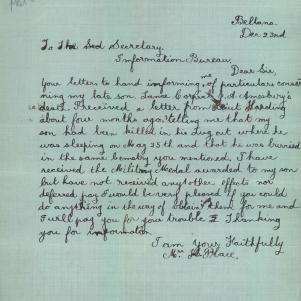 Bellana.
Dec 23rd
To The Sed Secretary.
Information Bureau.
Dear Sir,
Your letters to hand informing me particulars concer
ning my late son. Lance Corpiel J.A Amsbury's
death. I received a letter from Lieut Harding
about four months ago. telling me that my
son had been killed in his Dug out where he
was sleeping on May 25th and that he was buried
in the same cemetry you mentioned, I have
received the Military Medal awarded to my son
but have not received any other effects nor
deferred pay I would be very pleased if you could
do anything in the way of obtain them for me and
I will pay you for your trouble I Thanking
you for information
I am Your Faithfully
Mrs